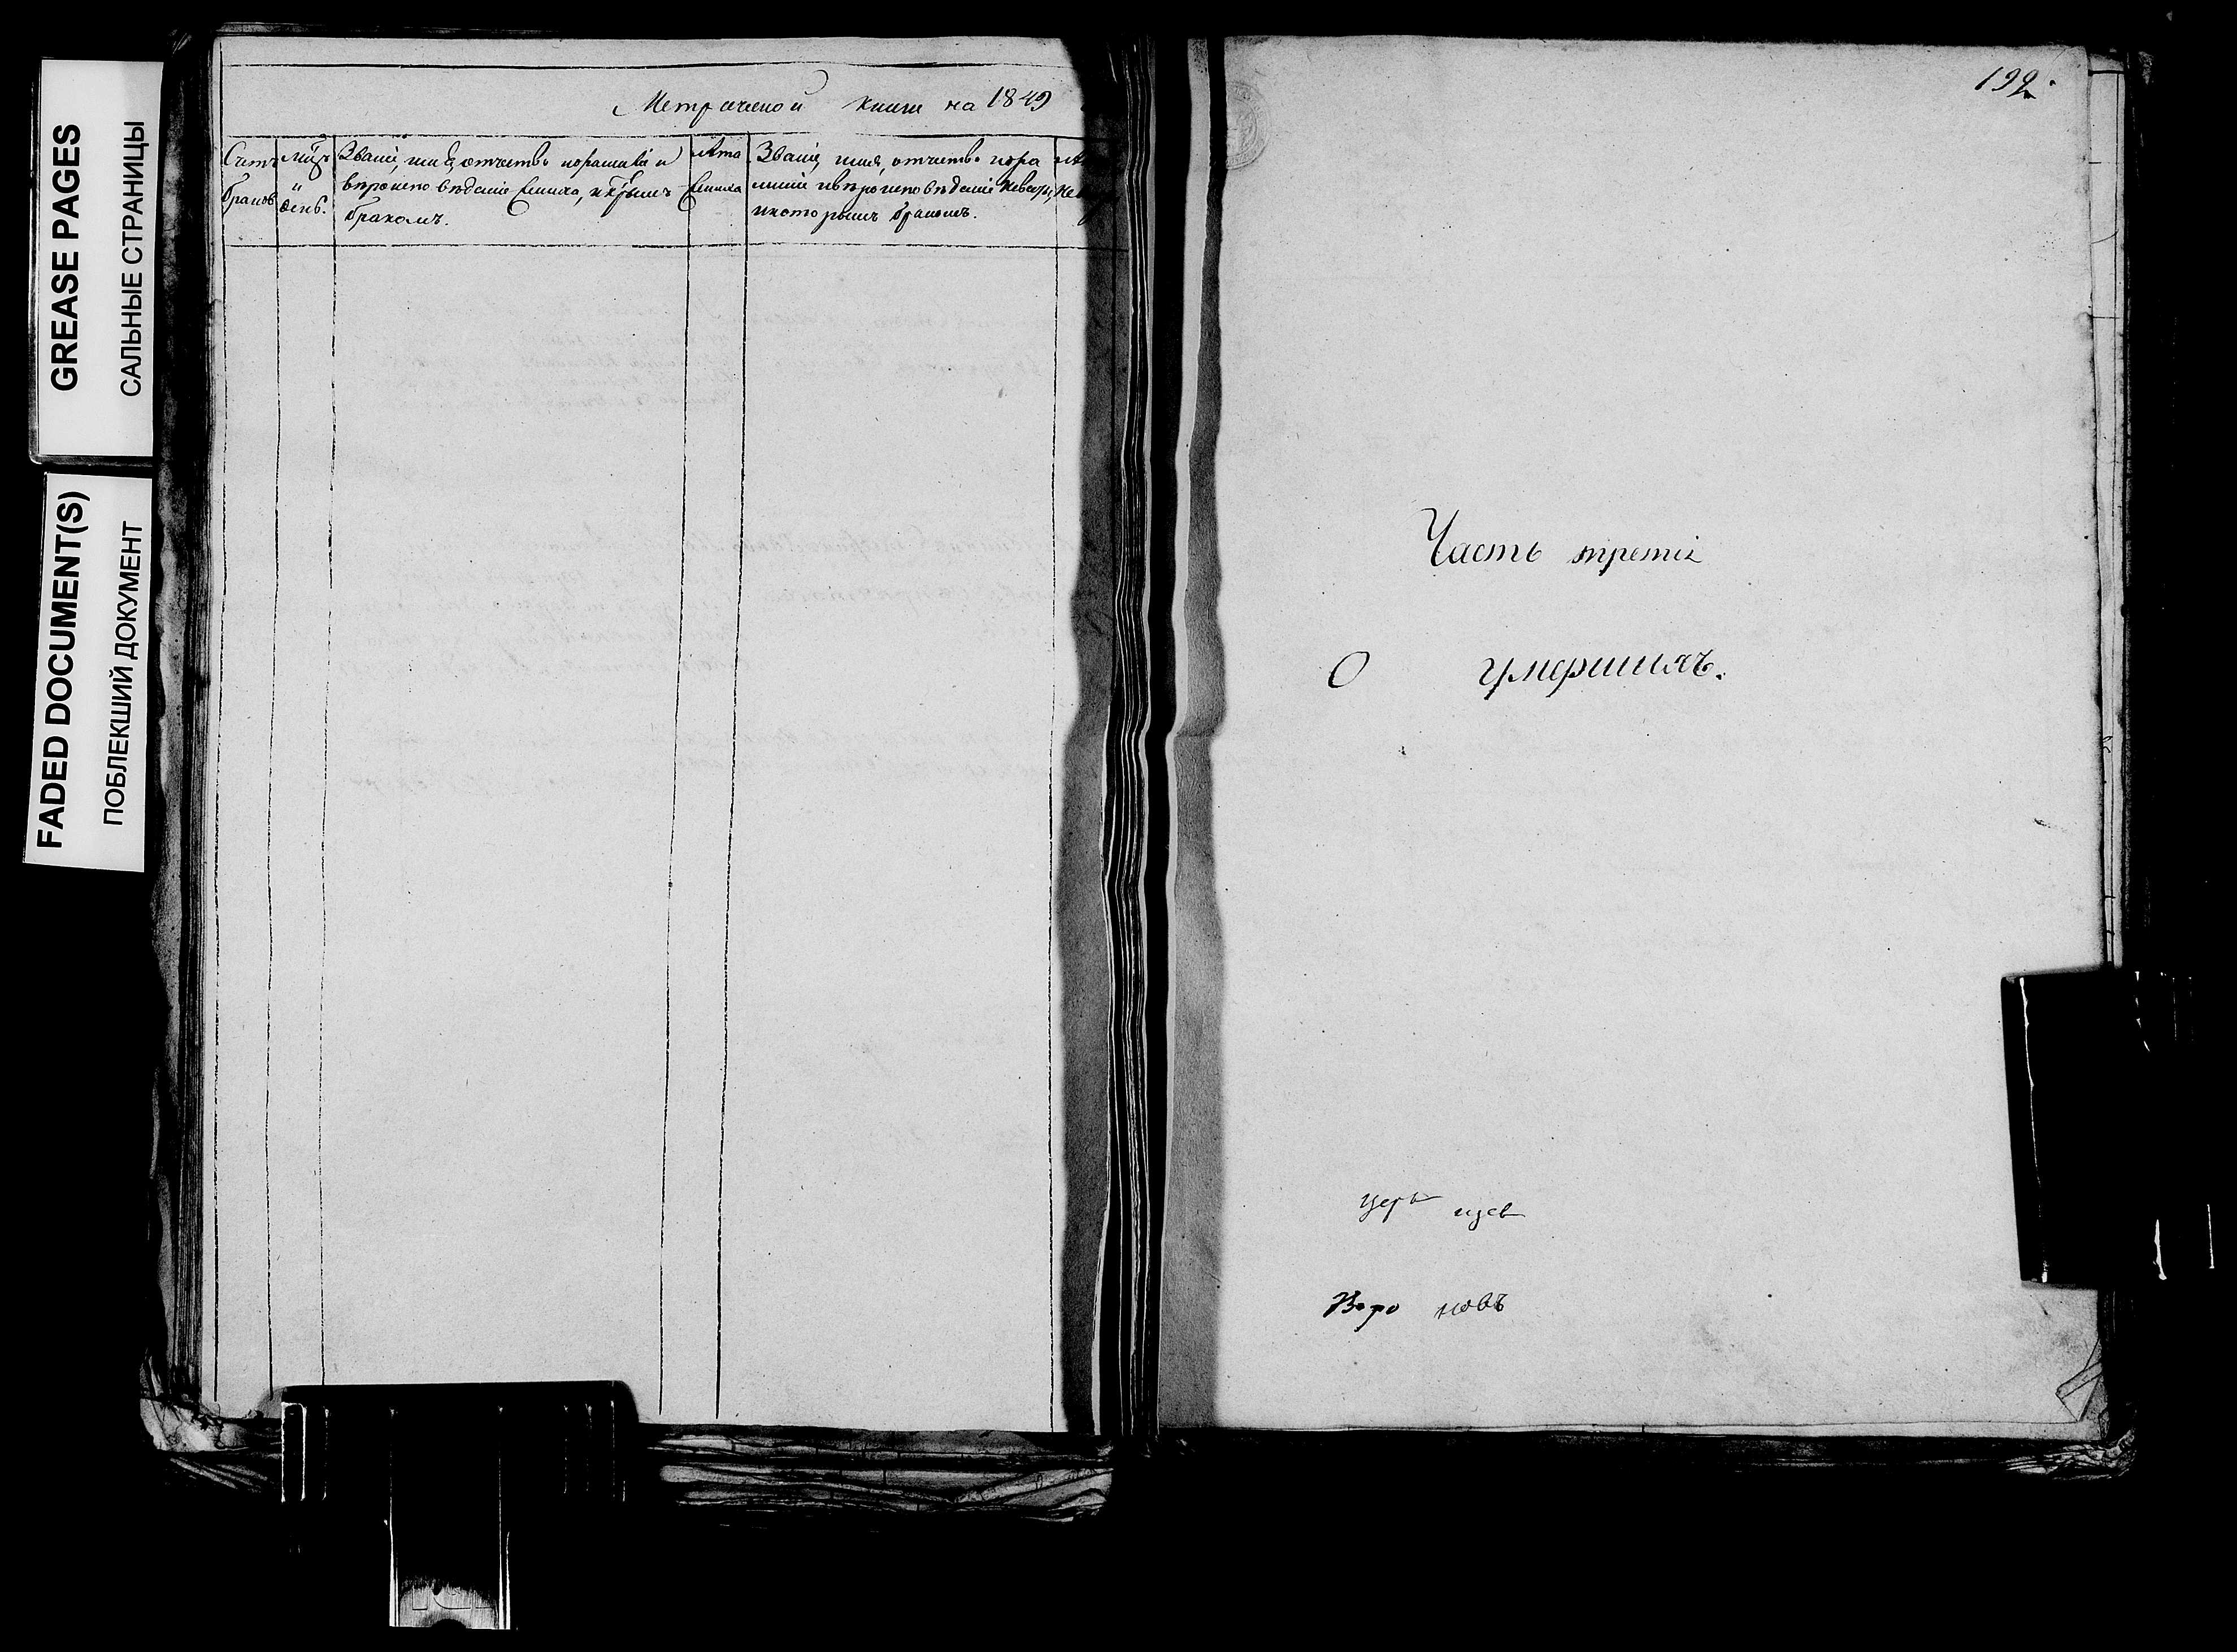 GREASE PAGES
САЛЬНЫЕ СТРАНИЦЫ
FADED DOCUMENT(S)
ПОБЛЕКШИЙ ДОКУМЕНТ
Метрической книги на 1849
Счетъ браковъ
мѣц. и день.
Званіе, имя, отчество, фамилія и
вѣроисповѣданіе жениха, и кᲂрымъ
бракомъ.
Лѣта
жениха
Званіе, имя, отчество, фами
лія и вѣроисповѣданіе невѣсты,
и которымъ бракомъ.
192.
Часть третія
О умершихъ.
новъ